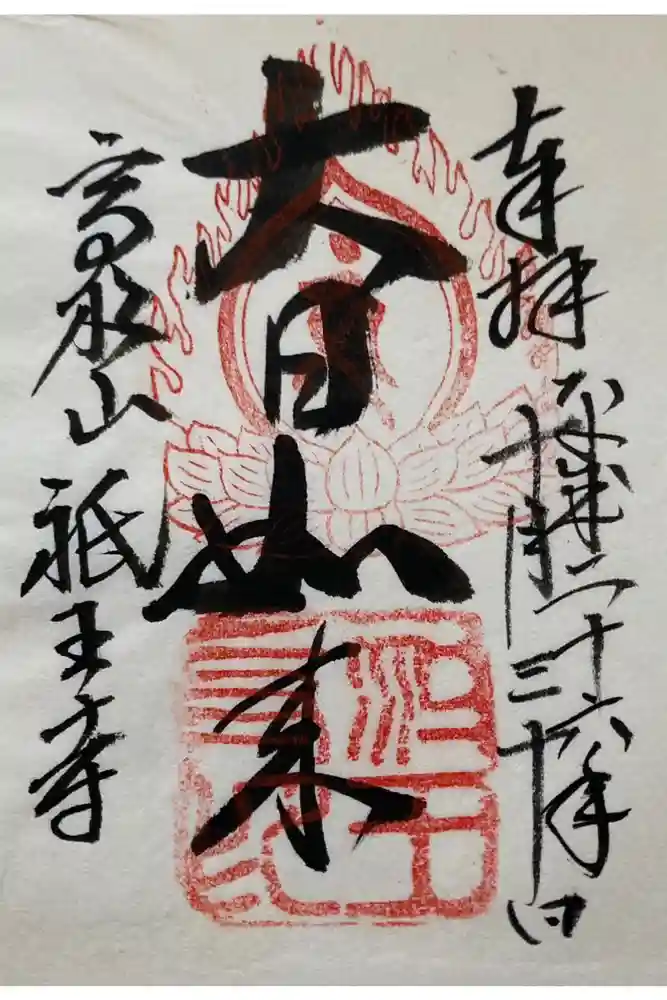 奉拝
平成二十六年
十月三十日
大日如来
高松山 祇王寺